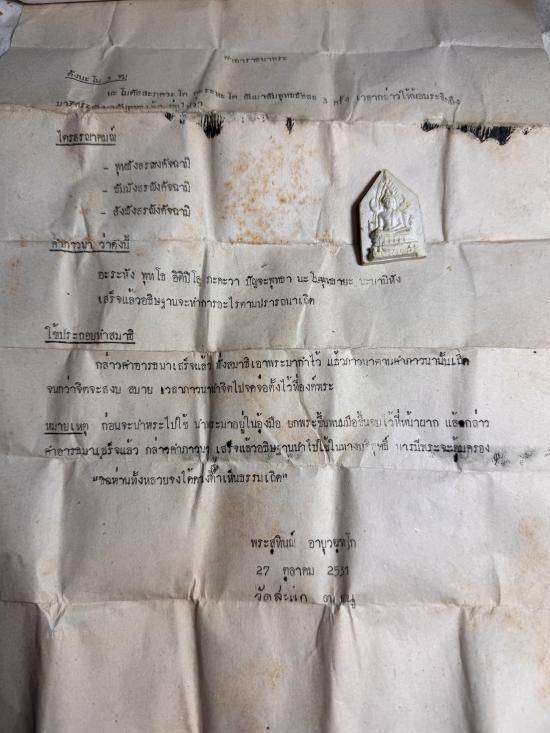 คำอาราธนาพระ
ตั้งนะโม ๓ จบ
นะ โมตัสสะภคะวะโต อะระหะโต สัมมาสัมพุทธัสสะ 3 ครั้ง เวลากล่าวให้น้อมระลึกถึง
ไตรสรณาคมณ์
- พุทธังสรณังคัจฉามิ
- ธัมมังสรณังคัจฉามิ
- สังฆังสรณังคัจฉามิ
คำภาวนา ว่าดังนี้
อะระหัง พุทโธ อิติปิโส ภะคะวา ปัญจะพุทธา นะโมพุทธายะ
เสร็จแล้วอธิษฐานจะทำการอะไรตามปรารถนาเถิด
ใช้ประกอบทำสมาธิ
กล่าวคำอารธนาเสร็จแล้ว นั่งสมาธิเอาพระมากำไว้ แล้วภาวนาตามคำภาวนานั้นเถิด
จนกว่าจิตจะสงบ สบาย เวลาภาวนาเอาจิตไปจดจ่อตั้งไว้ที่องค์พระ
หมายเหตุ ก่อนจะนำพระไปใช้ นำพระมาอยู่ในอุ้งมือ ยกพระขึ้นพนมมือขึ้นจบไว้ที่หน้าผาก แล้วกล่าว
คำอารธนาเสร็จแล้ว กล่าวคำภาวนา เสร็จแล้วอธิษฐานนำไปใช้ในทางบริสุทธิ์ บารมีพระจะคุ้มครอง
"ขอท่านทั้งหลายจงได้ดวงตาเห็นธรรมเถิด"
พระสุทินณ์
27 ตุลาคม 2531
วัดสะแก